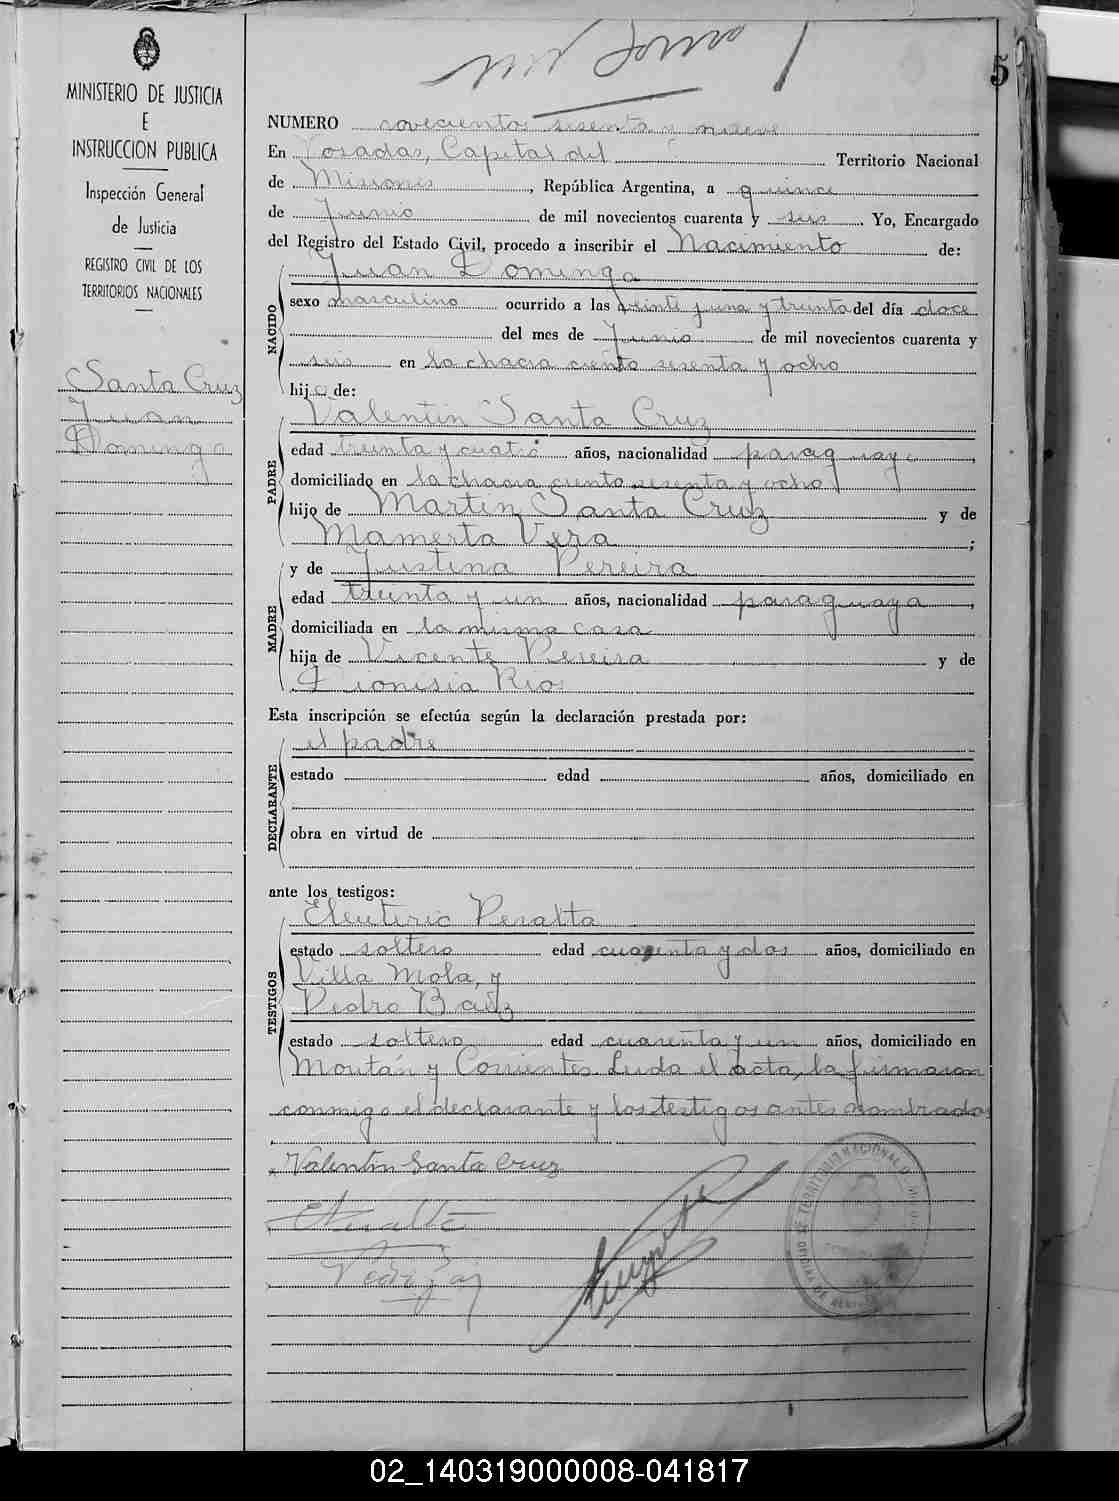 5
MINISTERIO DE JUSTICIA
E
INSTRUCCION PUBLICA
Inspección General
de Justicia
REGISTRO CIVIL DE LOS
TERRITORIOS NACIONALES
Santa Cruz
Juan
Domingo
NUMERO novecientos sesenta y nueve
En Posadas, Capital del Territorio Nacional
de Misiones, República Argentina, a quince
de Junio de mil novecientos cuarenta y seis. Yo, Encargado
del Registro del Estado Civil, procedo a inscribir el Nacimiento de:
Juan Domingo
NACIDO
sexo masculino ocurrido a las veinte y una y treinta del día doce
del mes de Junio de mil novecientos cuarenta y
seis en la chacra ciento sesenta y ocho
hijo de:
Valentin Santa Cruz
PADRE
edad treinta y cuatro años, nacionalidad paraguayo,
domiciliado en la chacra ciento sesenta y ocho
hijo de Martin Santa Cruz y de
Mamerta Vera ;
y de Justina Pereira
MADRE
edad treinta y un años, nacionalidad paraguaya,
domiciliada en la misma casa
hija de Vicente Pereira y de
Dionisia Rios
Esta inscripción se efectúa según la declaración prestada por:
el padre
DECLARANTE
estado edad años, domiciliado en
obra en virtud de
ante los testigos:
Eleuterio Peralta
TESTIGOS
estado soltero edad cuarenta y dos años, domiciliado en
Villa Mola, y
Pedro Baez
estado soltero edad cuarenta y un años, domiciliado en
Moután y Corrientes. Leída el acta, la firmaron
conmigo el declarante y los testigos antes nombrados
Valentin Santa Cruz
EPeralta
02_140319000008-041817